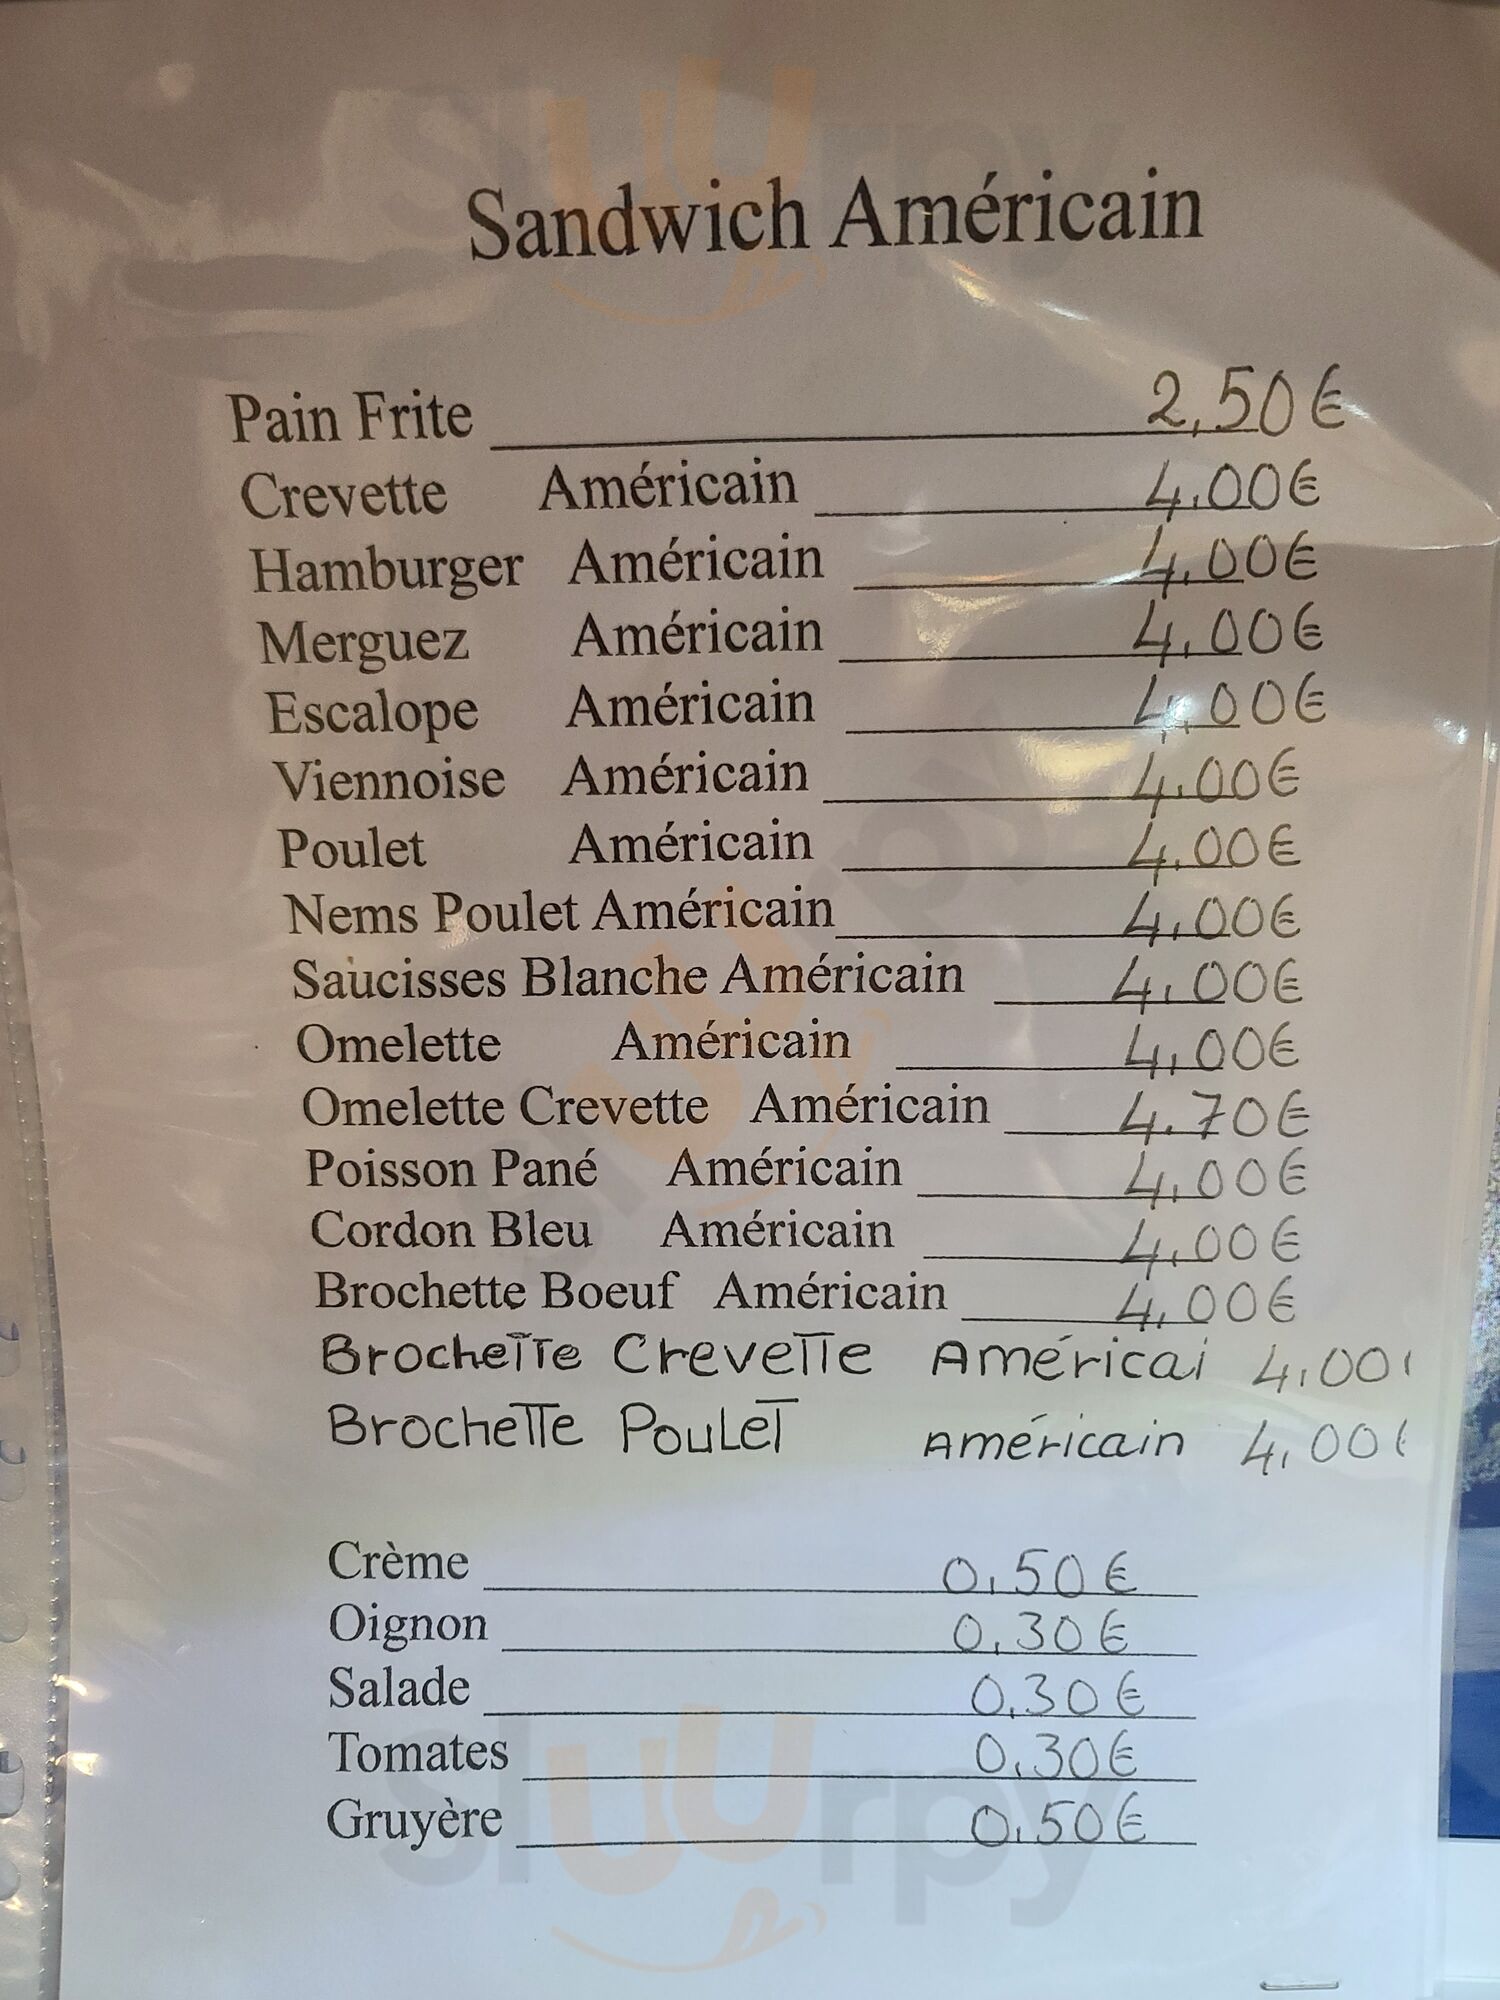 Sandwich Américain
Pain Frite 2,50€
Crevette Américain 4,00€
Hamburger Américain 4,00€
Merguez Américain 4,00€
Escalope Américain 4,00€
Viennoise Américain 4,00€
Poulet Américain 4,00€
Nems Poulet Américain 4,00€
Saucisses Blanche Américain 4,00€
Omelette Américain 4,00€
Omelette Crevette Américain 4.70€
Poisson Pané Américain 4,00€
Cordon Bleu Américain 4,00€
Brochette Boeuf Américain 4,00€
Brochette Crevette Américai 4,00
Brochette Poulet Américain 4,00€
Crème 0,50€
Oignon 0,30€
Salade 0,30€
Tomates 0,30€
Gruyère 0,50€
sluurpy
sluurpy
sluurpy